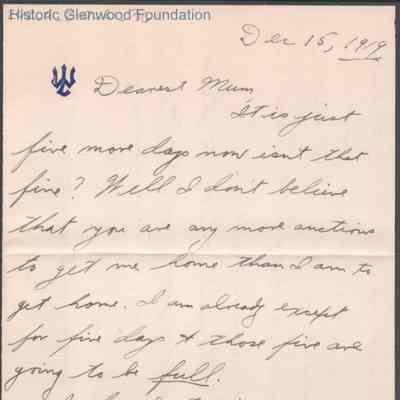 Historic Glenwood Foundation
Dec 15, 1919
Dearest Mum
It is just
five more days now isn't that
fine? Well I don't believe
that you are any more anctions
to get me home than I am to
get home. I am already except
for five days & those five are
going to be full.